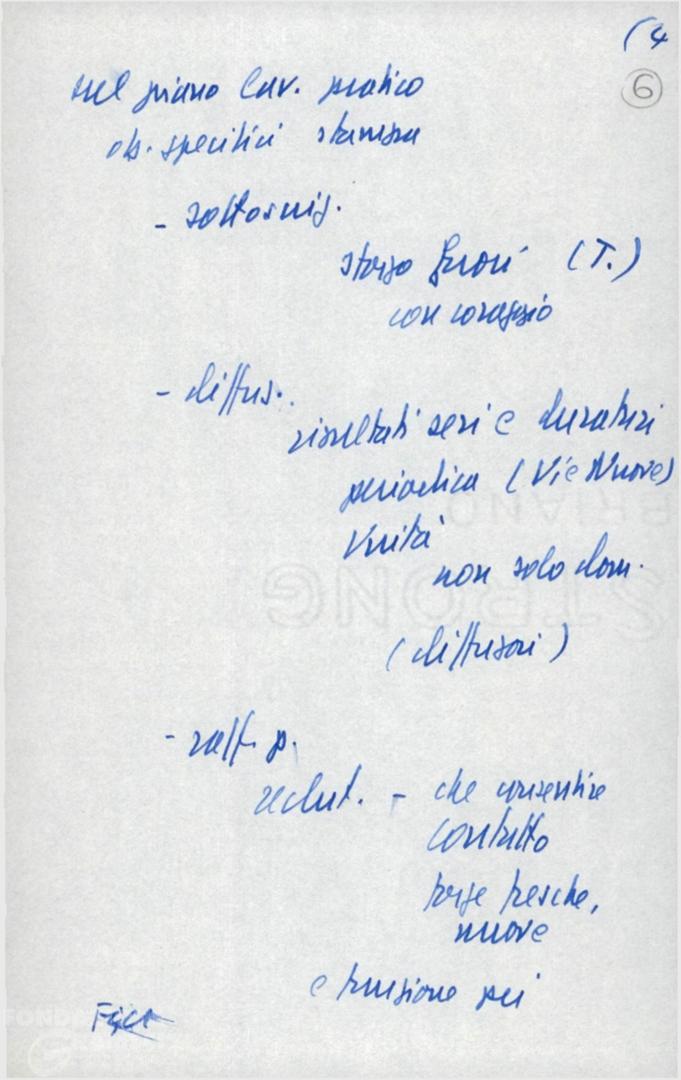 (4
6
nel piano lav. pratico
ob. specifici stampa
- sottoscriz.
sforzo fuori (T.)
con coraggio
- diffus.
risultati seri e duraturi
periodica (Vie Nuove)
Unità
non solo dom.
(diffusori)
- raff. p.
reclut. - che consentire
contatto
forze fresche,
nuove
e funzione pci
STRONG